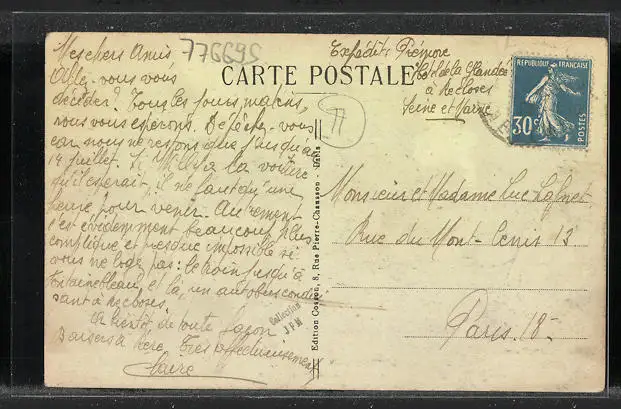 Mes chers Amis
776695
Allez-vous vous
décider? Tous les jours, matins,
nous vous espérons. Dépêchez-vous
car nous ne restons que jusqu'au
4 juillet. Si a la voiture
qu'il espérait, il ne faut qu'une
heure pour venir. Autrement
c'est évidemment beaucoup plus
compliqué et presque impossible si
vous ne logez pas: le train jusqu'à
Fontainebleau, et là, un autobus condui-
sant à Recloses.
A bientôt, de toute façon
Baisers à Très affectueusement
Claire
CARTE POSTALE
77
Expéditr
Hôtel de la
à Recloses
Seine et Marne
REPUBLIQUE FRANÇAISE
30c
POSTES
Monsieur et Madame Luc
Rue du Mont-Cenis 12
Paris. 18-
Edition Cosson, 8, Rue Pierre-Chausson - Paris
Collection
JPM